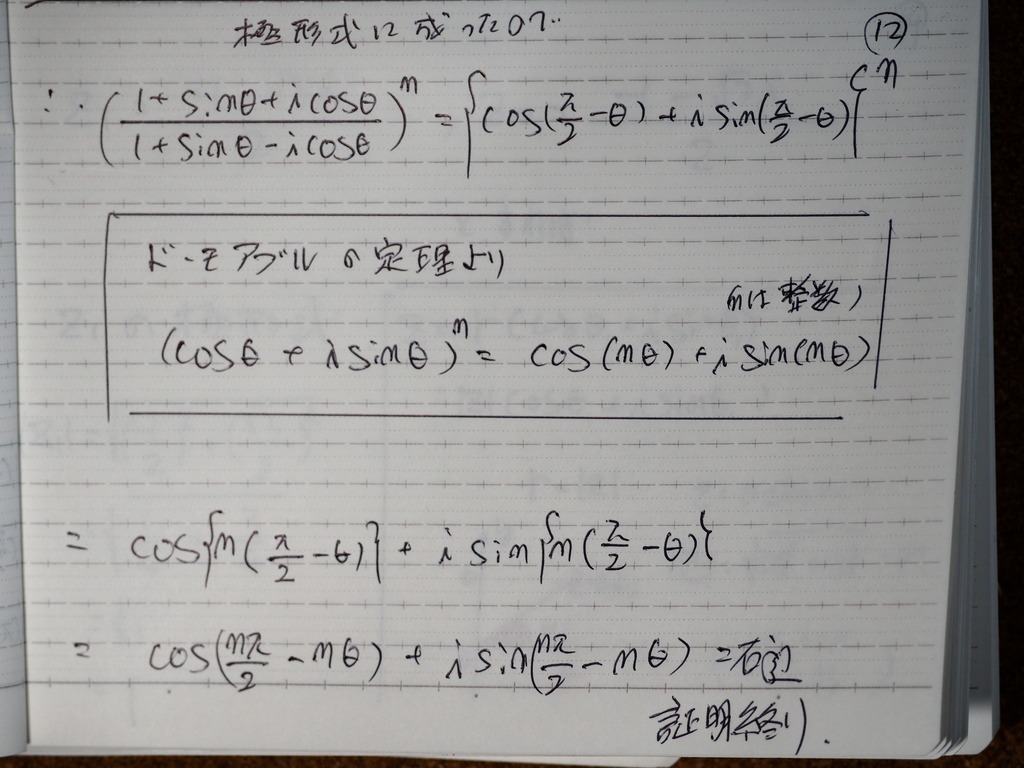 極形式に成ったので‥
⑫
∴ ((1 + sinθ + i cosθ)/(1 + sinθ - i cosθ))^n = {cos(π/2 - θ) + i sin(π/2 - θ)}^n
ド・モアブルの定理より
nは整数)
(cosθ + i sinθ)^n = cos(nθ) + i sin(nθ)
= cos{n(π/2 - θ)} + i sin{n(π/2 - θ)}
= cos(nπ/2 - nθ) + i sin(nπ/2 - nθ) = 右辺
証明終り).